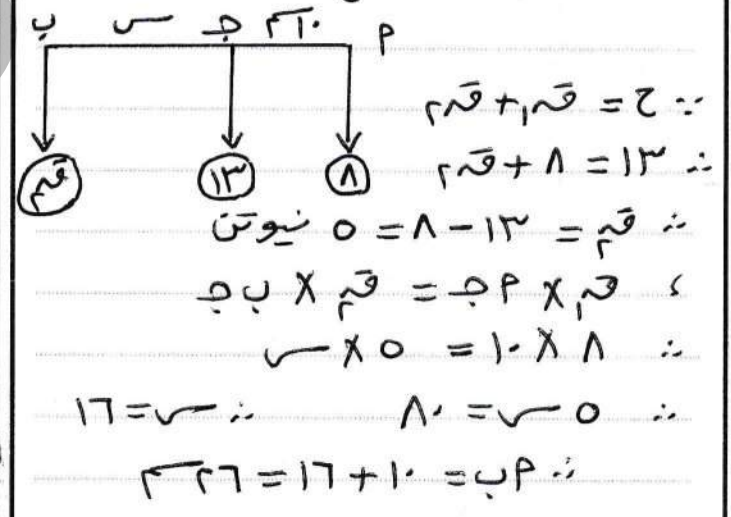 ب س جـ ١٠سم م
٨ ١٣ ق٢
∵ ح = ق١ + ق٢
∴ ١٣ = ٨ + ق٢
∴ ق٢ = ١٣ - ٨ = ٥ نيوتن
، ق١ × م جـ = ق٢ × ب جـ
∴ ٨ × ١٠ = ٥ × س
∴ ٥ س = ٨٠ ∴ س = ١٦
∴ م ب = ١٠ + ١٦ = ٢٦ سم